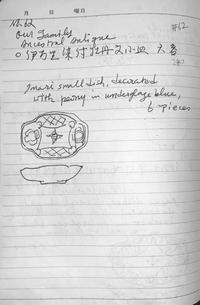 月 日 曜日
#12
Our Family
Ancestral Antique
伊万里染付牡丹文小皿 六客
Imari small dish, decorated
with peony in underglaze blue,
6 pieces